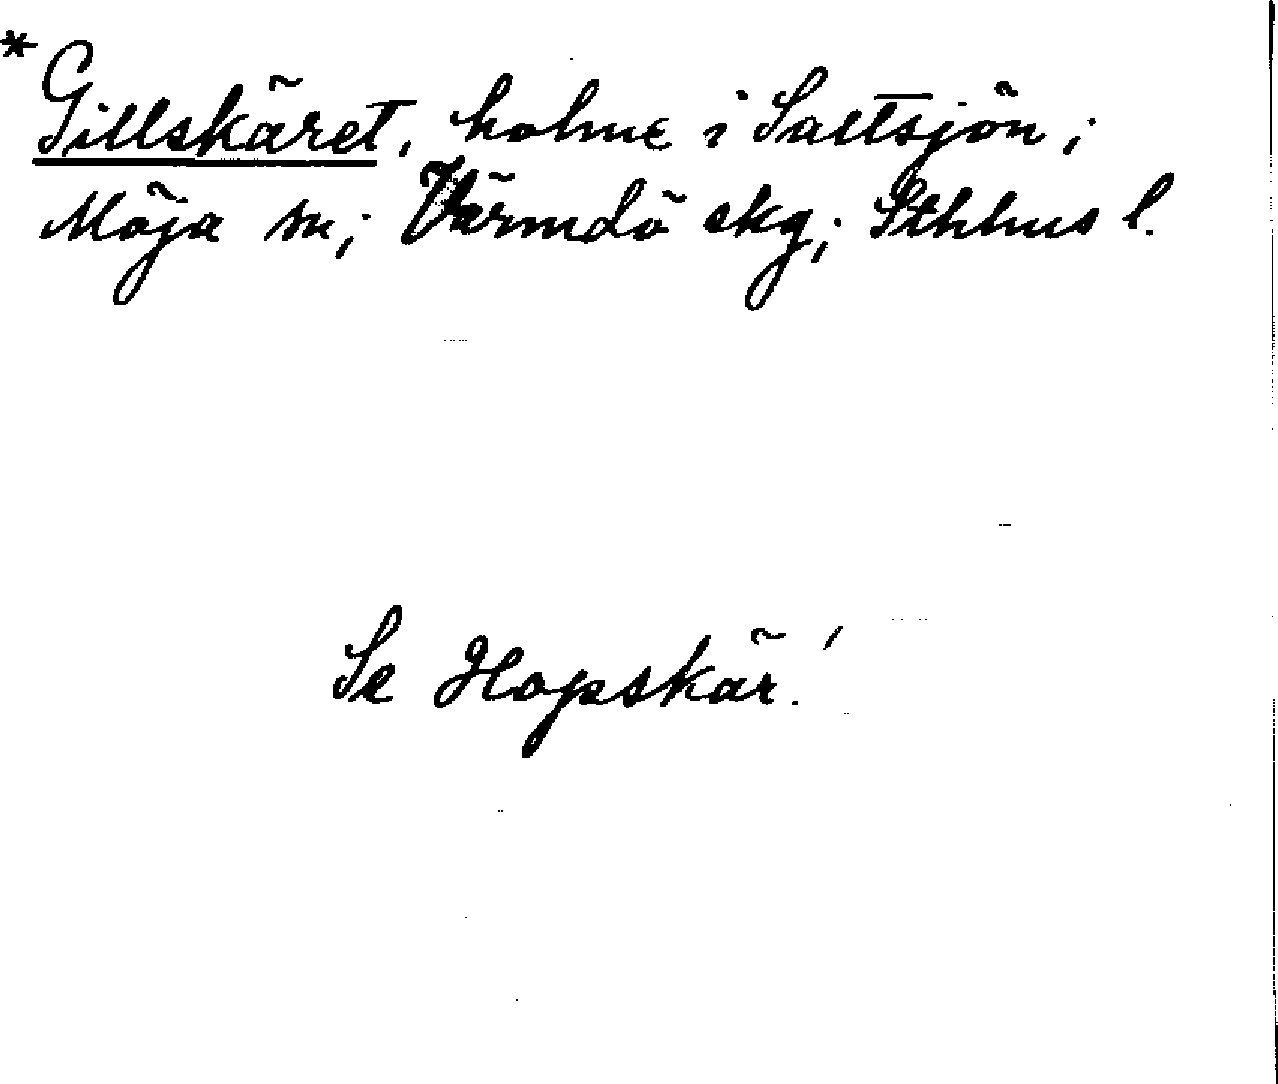 *Gillskäret, holme i Saltsjön;
Möja sn; Värmdö skg; Sthlms l.
Se Hopskär!